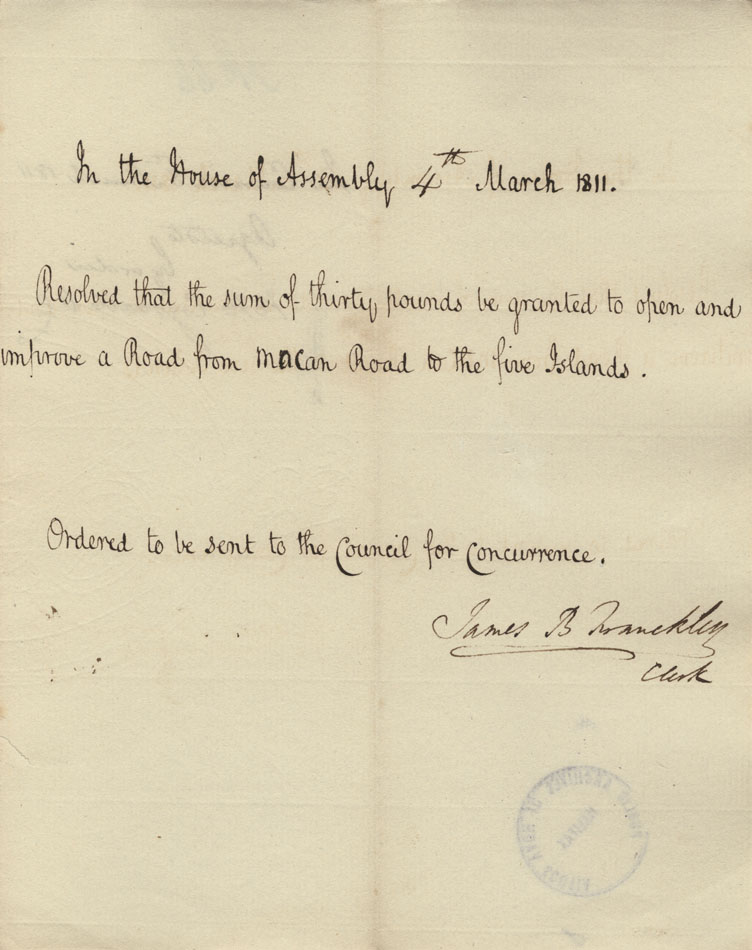 In the House of Assembly 4th March 1811.
Resolved that the sum of thirty pounds be granted to open and
improve a Road from Macan Road to the five Islands.
Ordered to be sent to the Council for Concurrence.
James B Franckley
Clerk